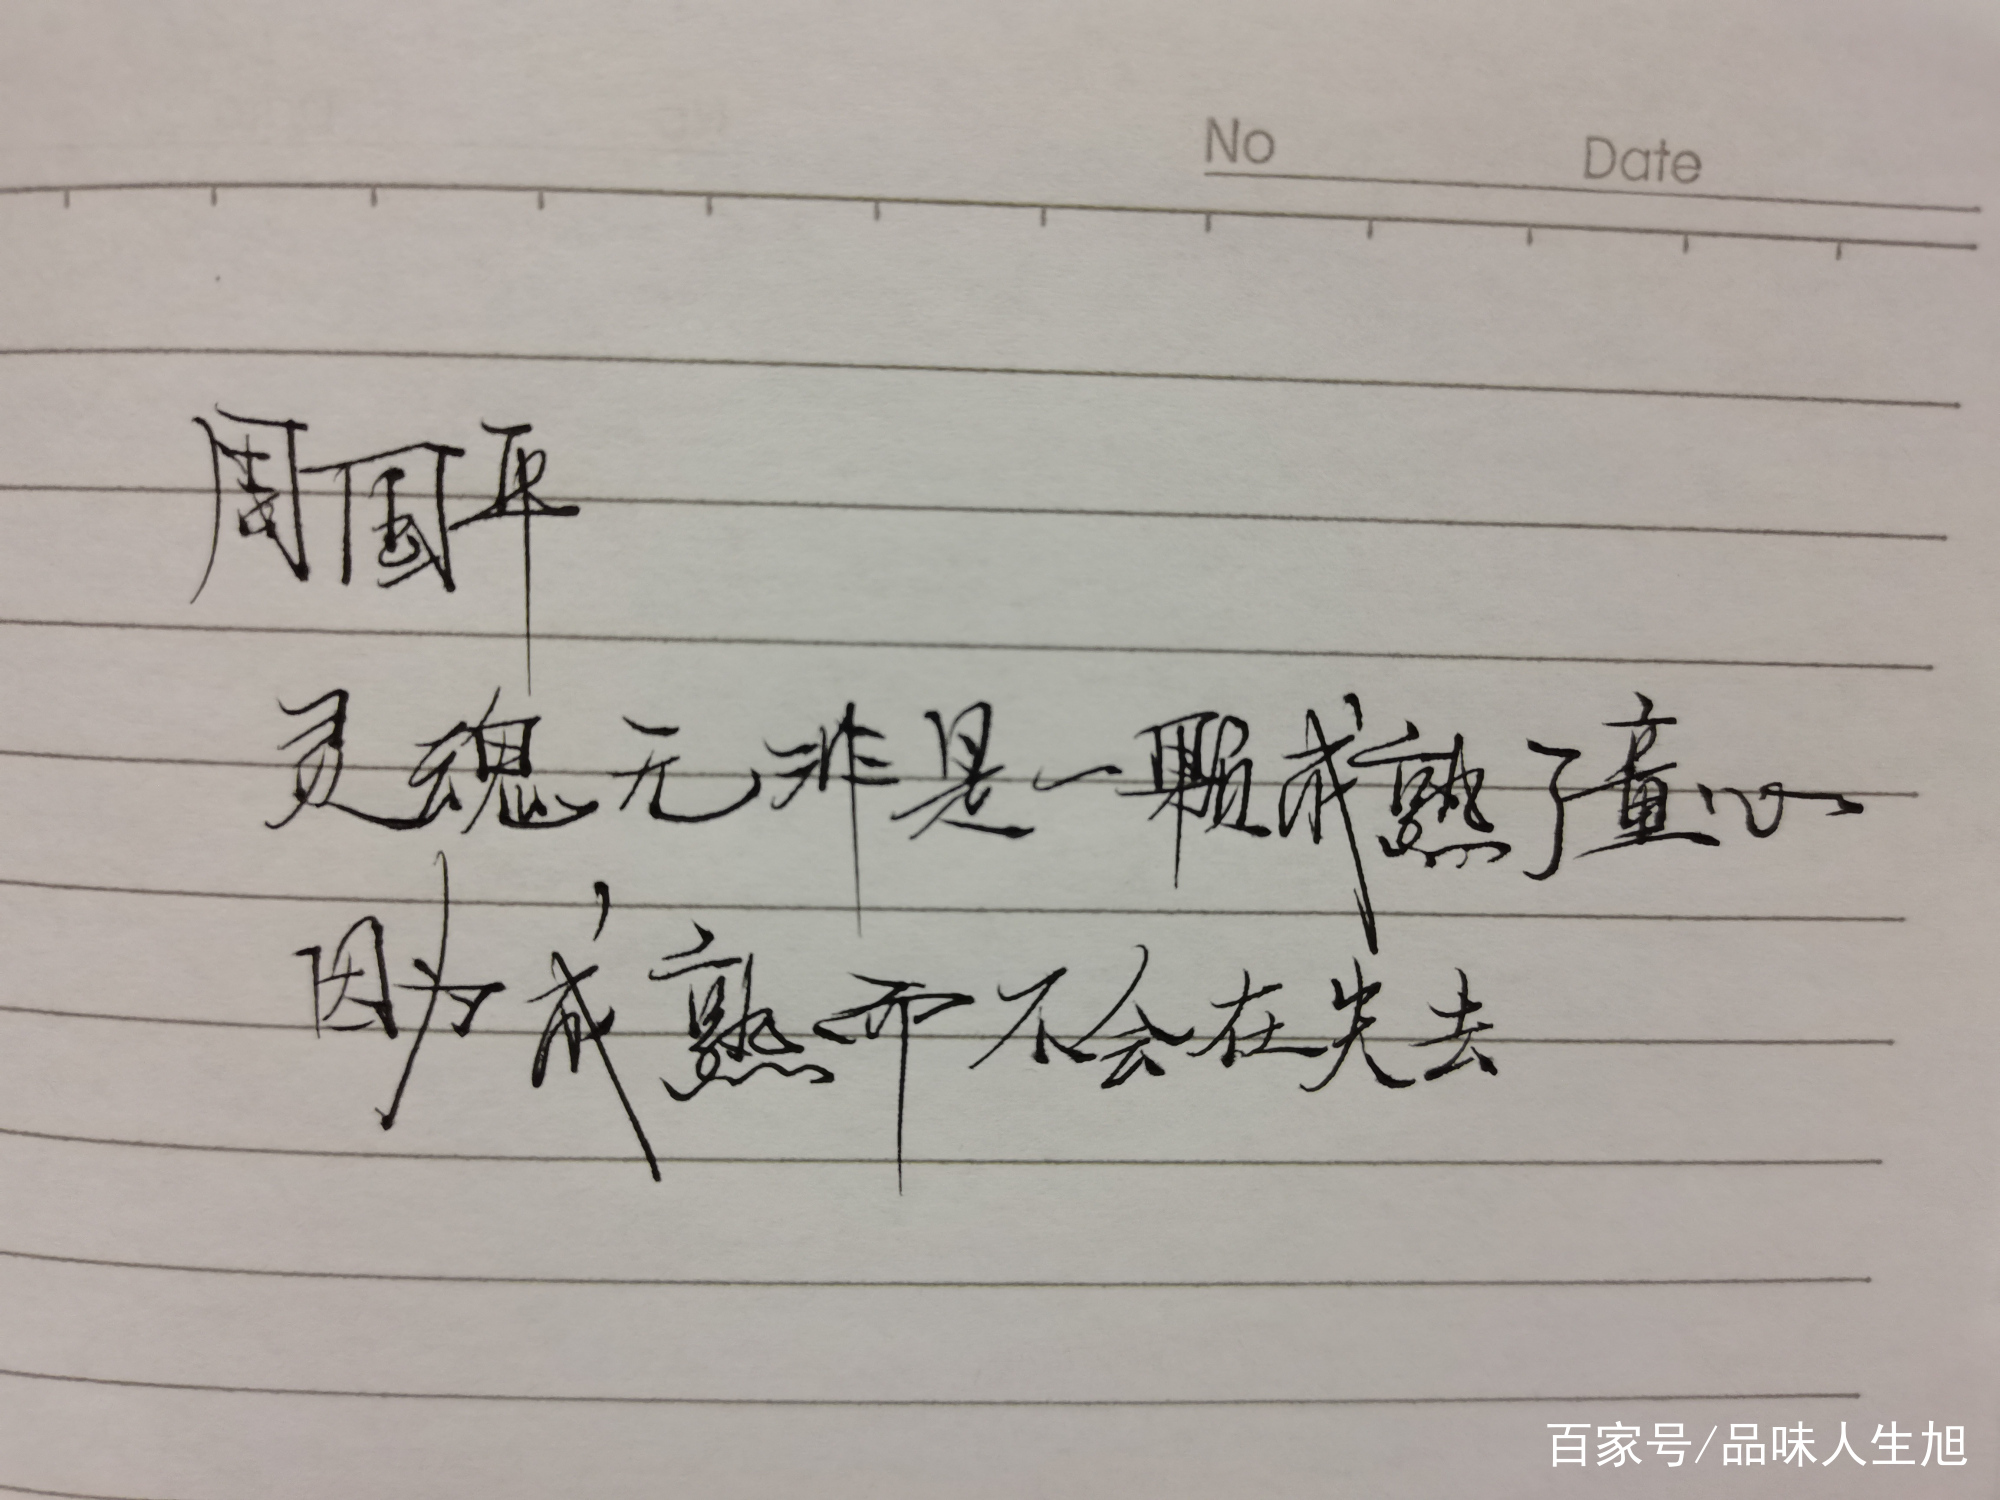 No Date
周国平
灵魂无非是一颗成熟了童心
因为成熟而不会在失去
百家号/品味人生旭